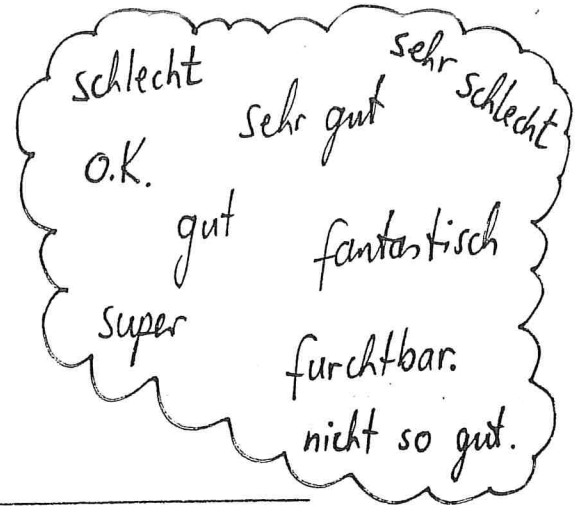 schlecht
sehr schlecht
sehr gut
O.K.
gut
fantastisch
super
furchtbar.
nicht so gut.